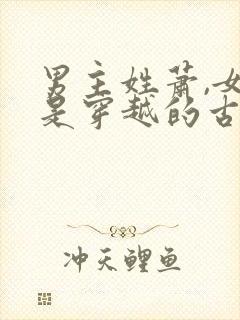 男主姓萧,女
是穿越的古
冲天鲤鱼